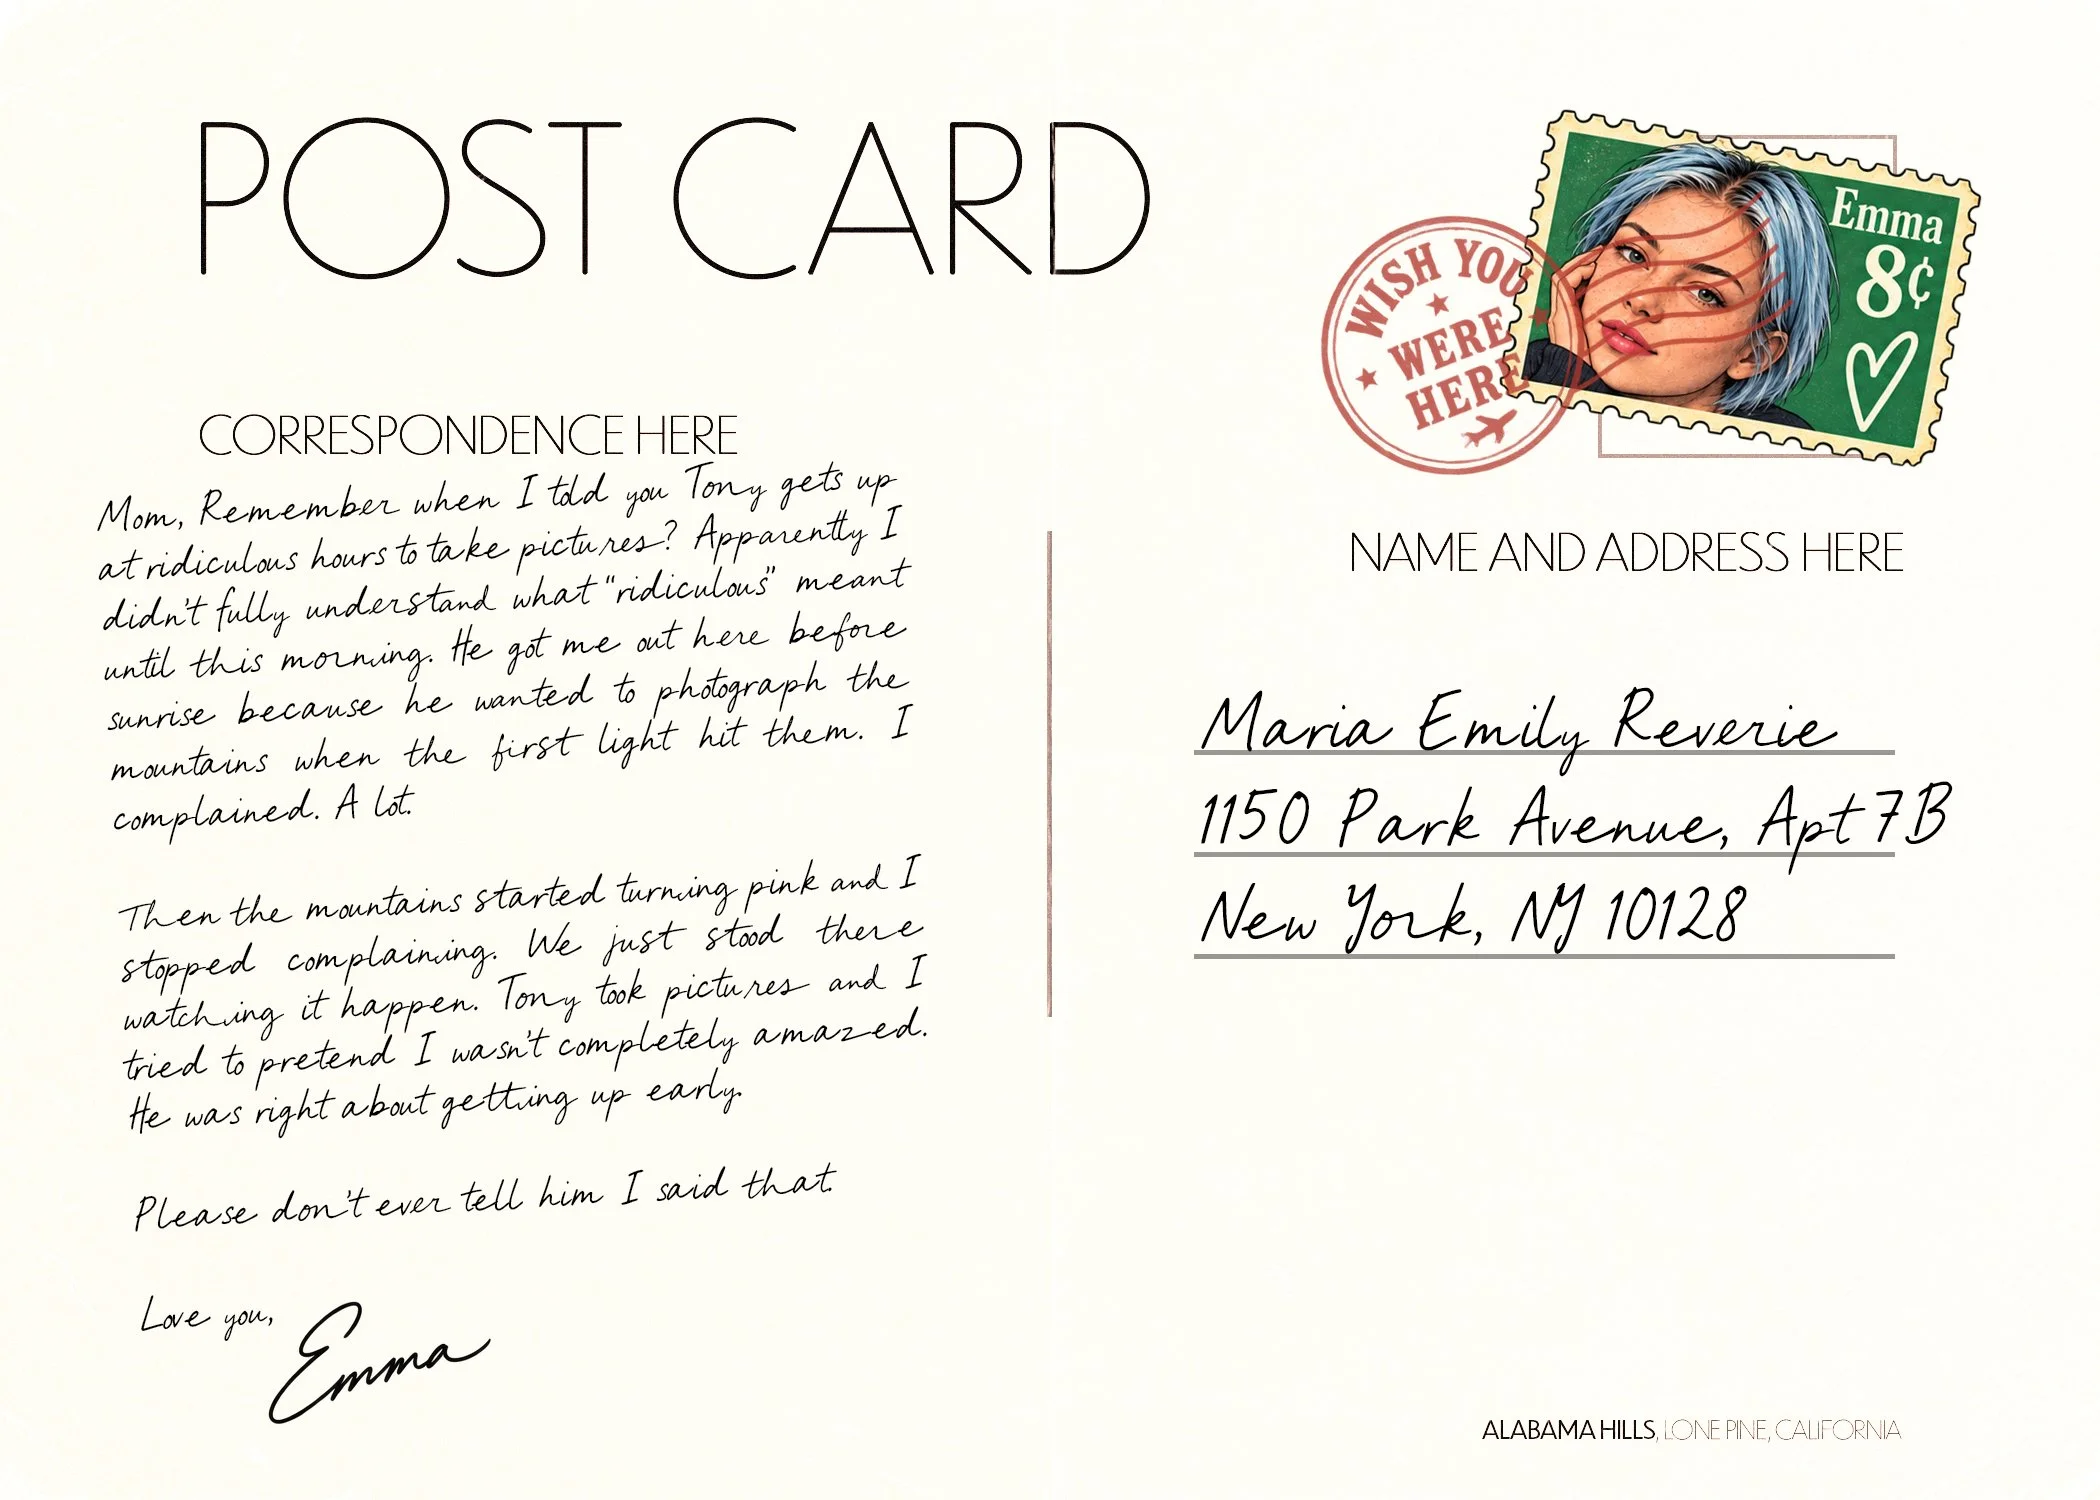 POST CARD
CORRESPONDENCE HERE
Mom, Remember when I told you Tony gets up
at ridiculous hours to take pictures? Apparently I
didn't fully understand what "ridiculous" meant
until this morning. He got me out here before
sunrise because he wanted to photograph the
mountains when the first light hit them. I
complained. A lot.
Then the mountains started turning pink and I
stopped complaining. We just stood there
watching it happen. Tony took pictures and I
tried to pretend I wasn't completely amazed.
He was right about getting up early.
Please don't ever tell him I said that.
Love you,
Emma
WISH YOU
WERE
HERE
Emma
8¢
NAME AND ADDRESS HERE
Maria Emily Reverie
1150 Park Avenue, Apt 7B
New York, NY 10128
ALABAMA HILLS, LONE PINE, CALIFORNIA